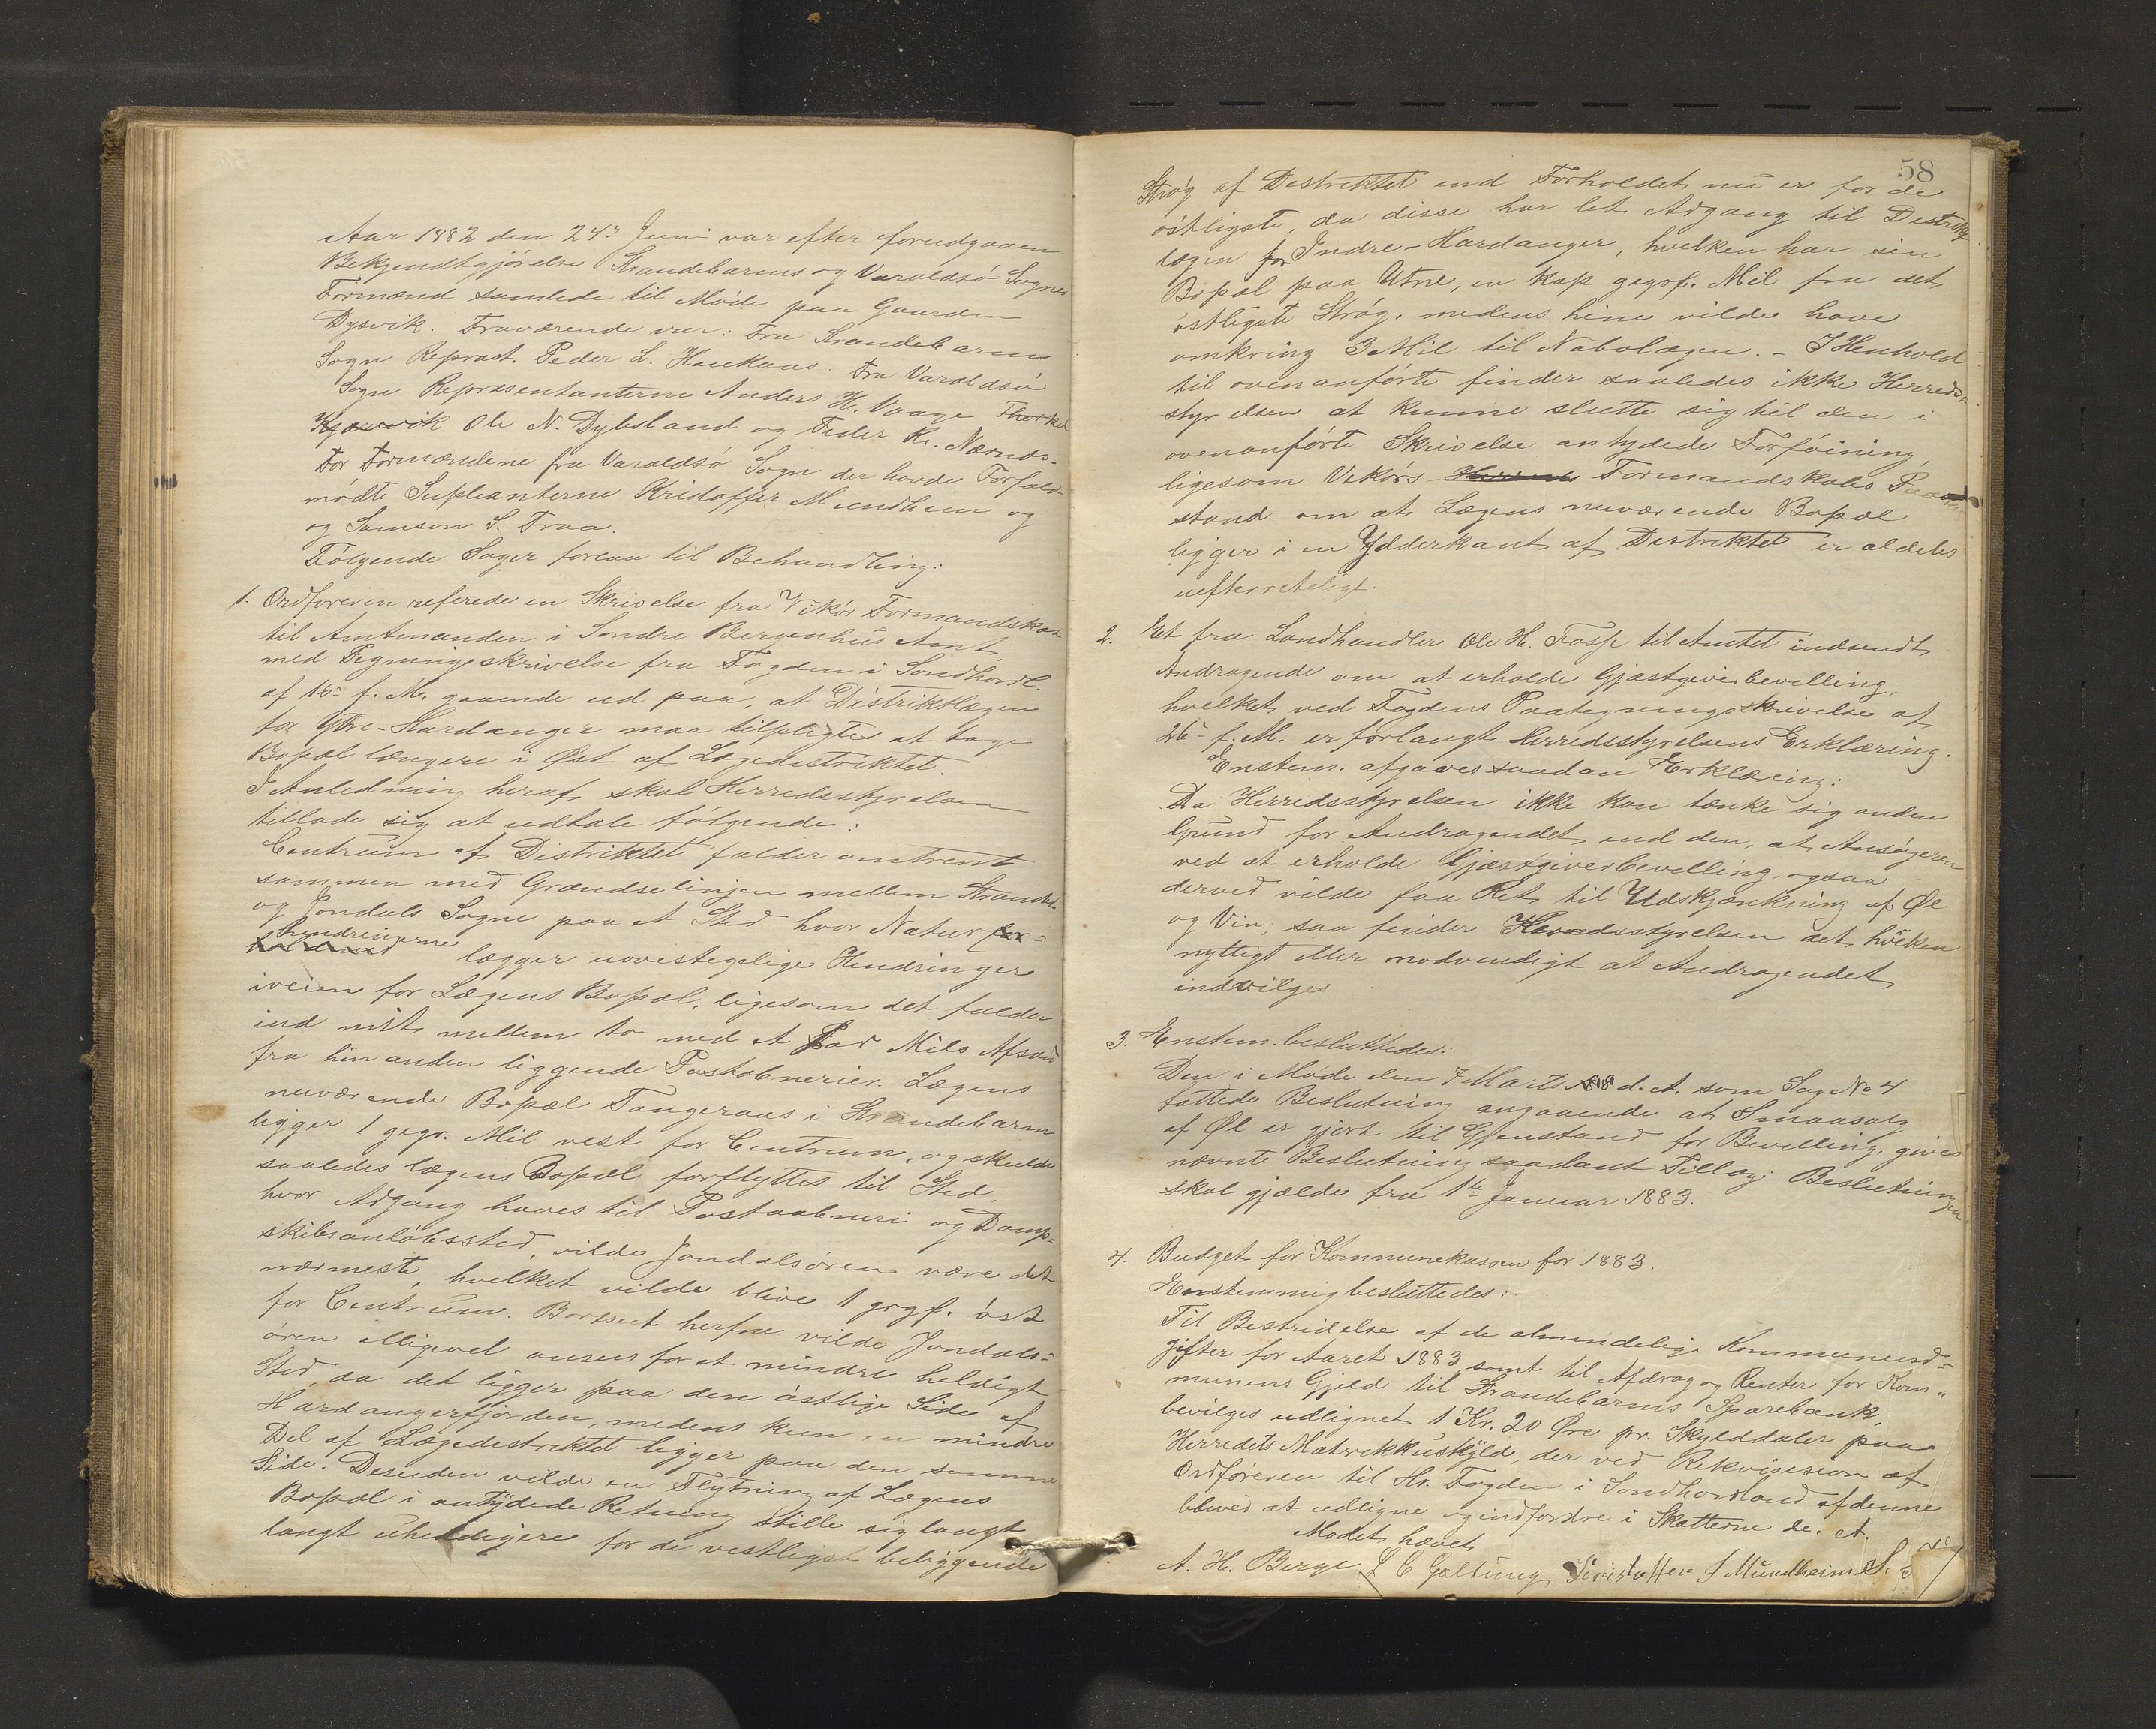 Aar 1882 den 24de Juni var efter forudgaaen
Bekjendtgjørelse Strandebarms og Varaldsø Sognes
Formænd samlede til Møde paa Gaarden
Dysvik. Fraværende var: Fra Strandebarms
Sogn Repræst. Peder L. Haukaas. Fra Varaldsø
Sogn Repræsentanterne Anders H. Vaage Thorkel
Ole N. Dybsland og Peder Kr. Nærnes.
For Formændene fra Varaldsø Sogn der havde Forfald
mødte Supleanterne Kristoffer Mundheim og
og Samson S. Traa.
Følgende Sager forevar til Behandling:
1. Ordføreren referede en Skrivelse fra Vikør Formandskab
til Amtmanden i Søndre Bergenhus Amt,
med Pegningsskrivelse fra Fogden i Søndhordl.
af 16de f. M. gaaende ud paa, at Distriktlægen
for Ytre-Hardanger maa tilpligtes at tage
Bopæl længere i Øst af Lægedistriktet.
I Anledning heraf skal Herredsstyrelsen
tillade sig at udtale følgende:
Centrum af Distriktet falder omtrent
sammen med Grændselinjen mellem Strandeb.
og Jondals Sogne paa et Sted hvor Naturfor-
hindringerne
lægger uovestegelige Hindringer
iveien for Lægens Bopæl, ligesom det falder
ind mitt mellem to med et Par Mils Afstand
fra hinanden liggende Postabnerier. Lægens
nuværende Bopæl Tangeraas i Strandebarm
ligger 1 gegr. Mil vest for Centrum, og skulde
saaledes lægens Bopæl forflyttes til Sted,
hvor Adgang haves til Postaabneri og Damp-
skibsanløbssted, vilde Jondalsøren være det
nærmeste, hvilket vilde blive 1 gegf. øst
for Centrum. Bortseet herfra vilde Jondals-
øren alligevel ansees for et mindre heldigt
Sted, da det ligger paa den østlige Side af
Hardangerfjorden, medens kun en mindre
Del af Lægedestriktet ligger paa den samme
Side. Desuden vilde en Flytning af Lægens
Bopæl i antydede Retning stille sig langt
langt uheldigere for de vestligst beliggende
58
Strøg af Destriktet end Forholdet nu er for de
østligste, da disse har let Adgang til Destrikts
lægen for Indre-Hardanger, hvilken har sin
Bopæl paa Utne, en knap gegof. Mil fra det
østligste Strøg, medens hine vilde have
omkring 3 Mil til Nabolægen. - I Henhold
til ovenanførte finder saaledes ikke Herreds-
styrelsen at kunne slutte sig til den i
ovenanførte Skrivelse antydede Forføining,
ligesom Vikørs Formandskabs Paa
stand om at Lægens nuværende Bopæl
ligger i en Ydderkant af Distriktet er aldeles
uefterreteligt.
2. Et fra Landhandler Ole H. Fosse til Amtet indsendt
Andragende om at erholde Gjæstgiverbevelling,
hvilket ved Fogdens Paategningsskrivelse af
26de f. M. er forlangt Herredsstyrelsens Erklæring.
Enstem. afgaves saadan Erklæring:
Da Herredsstyrelsen ikke kan tænke sig anden
Grund for Andragendet end den, at Ansøgeren
ved at erholde Gjæstgiverbevelling, ogsaa
derved vilde faa Ret til Udskjænkning af Øl
og Vin, saa finder Herredsstyrelsen det hverken
nyttigt eller nødvendigt at Andragendet
indvilges
3. Enstem. besluttedes:
Den i Møde den 7 Marz d. A. som Sag No 4
fattede Beslutning angaaende at Smaasalg
af Øl er gjort til Gjenstand for Bevelling, gives
nævnte Beslutning saadant Tillæg: Beslutningen
skal gjælde fra 1ste Januar 1883.
4. Budget for Kommunekassen for 1883.
Enstemmig besluttedes:
Til Bestridelse af de almindelige Kommuneud-
gifter for Aaret 1883 samt til Afdrag og Renter for Kom-
munens Gjeld til Strandebarms Sparebank,
bevilges udlignet 1 Kr. 20 Øre pr. Skylddaler paa
Herredets Matrikkulskyld, der ved Rekvisision af
Ordføreren til Hr. Fogden i Søndhordland af denne
blived at udligne og indfordre i Skatterne d. A.
Mødet hævet.
A. H. Berge J C Galtung Kristoffer J Mundheim S.